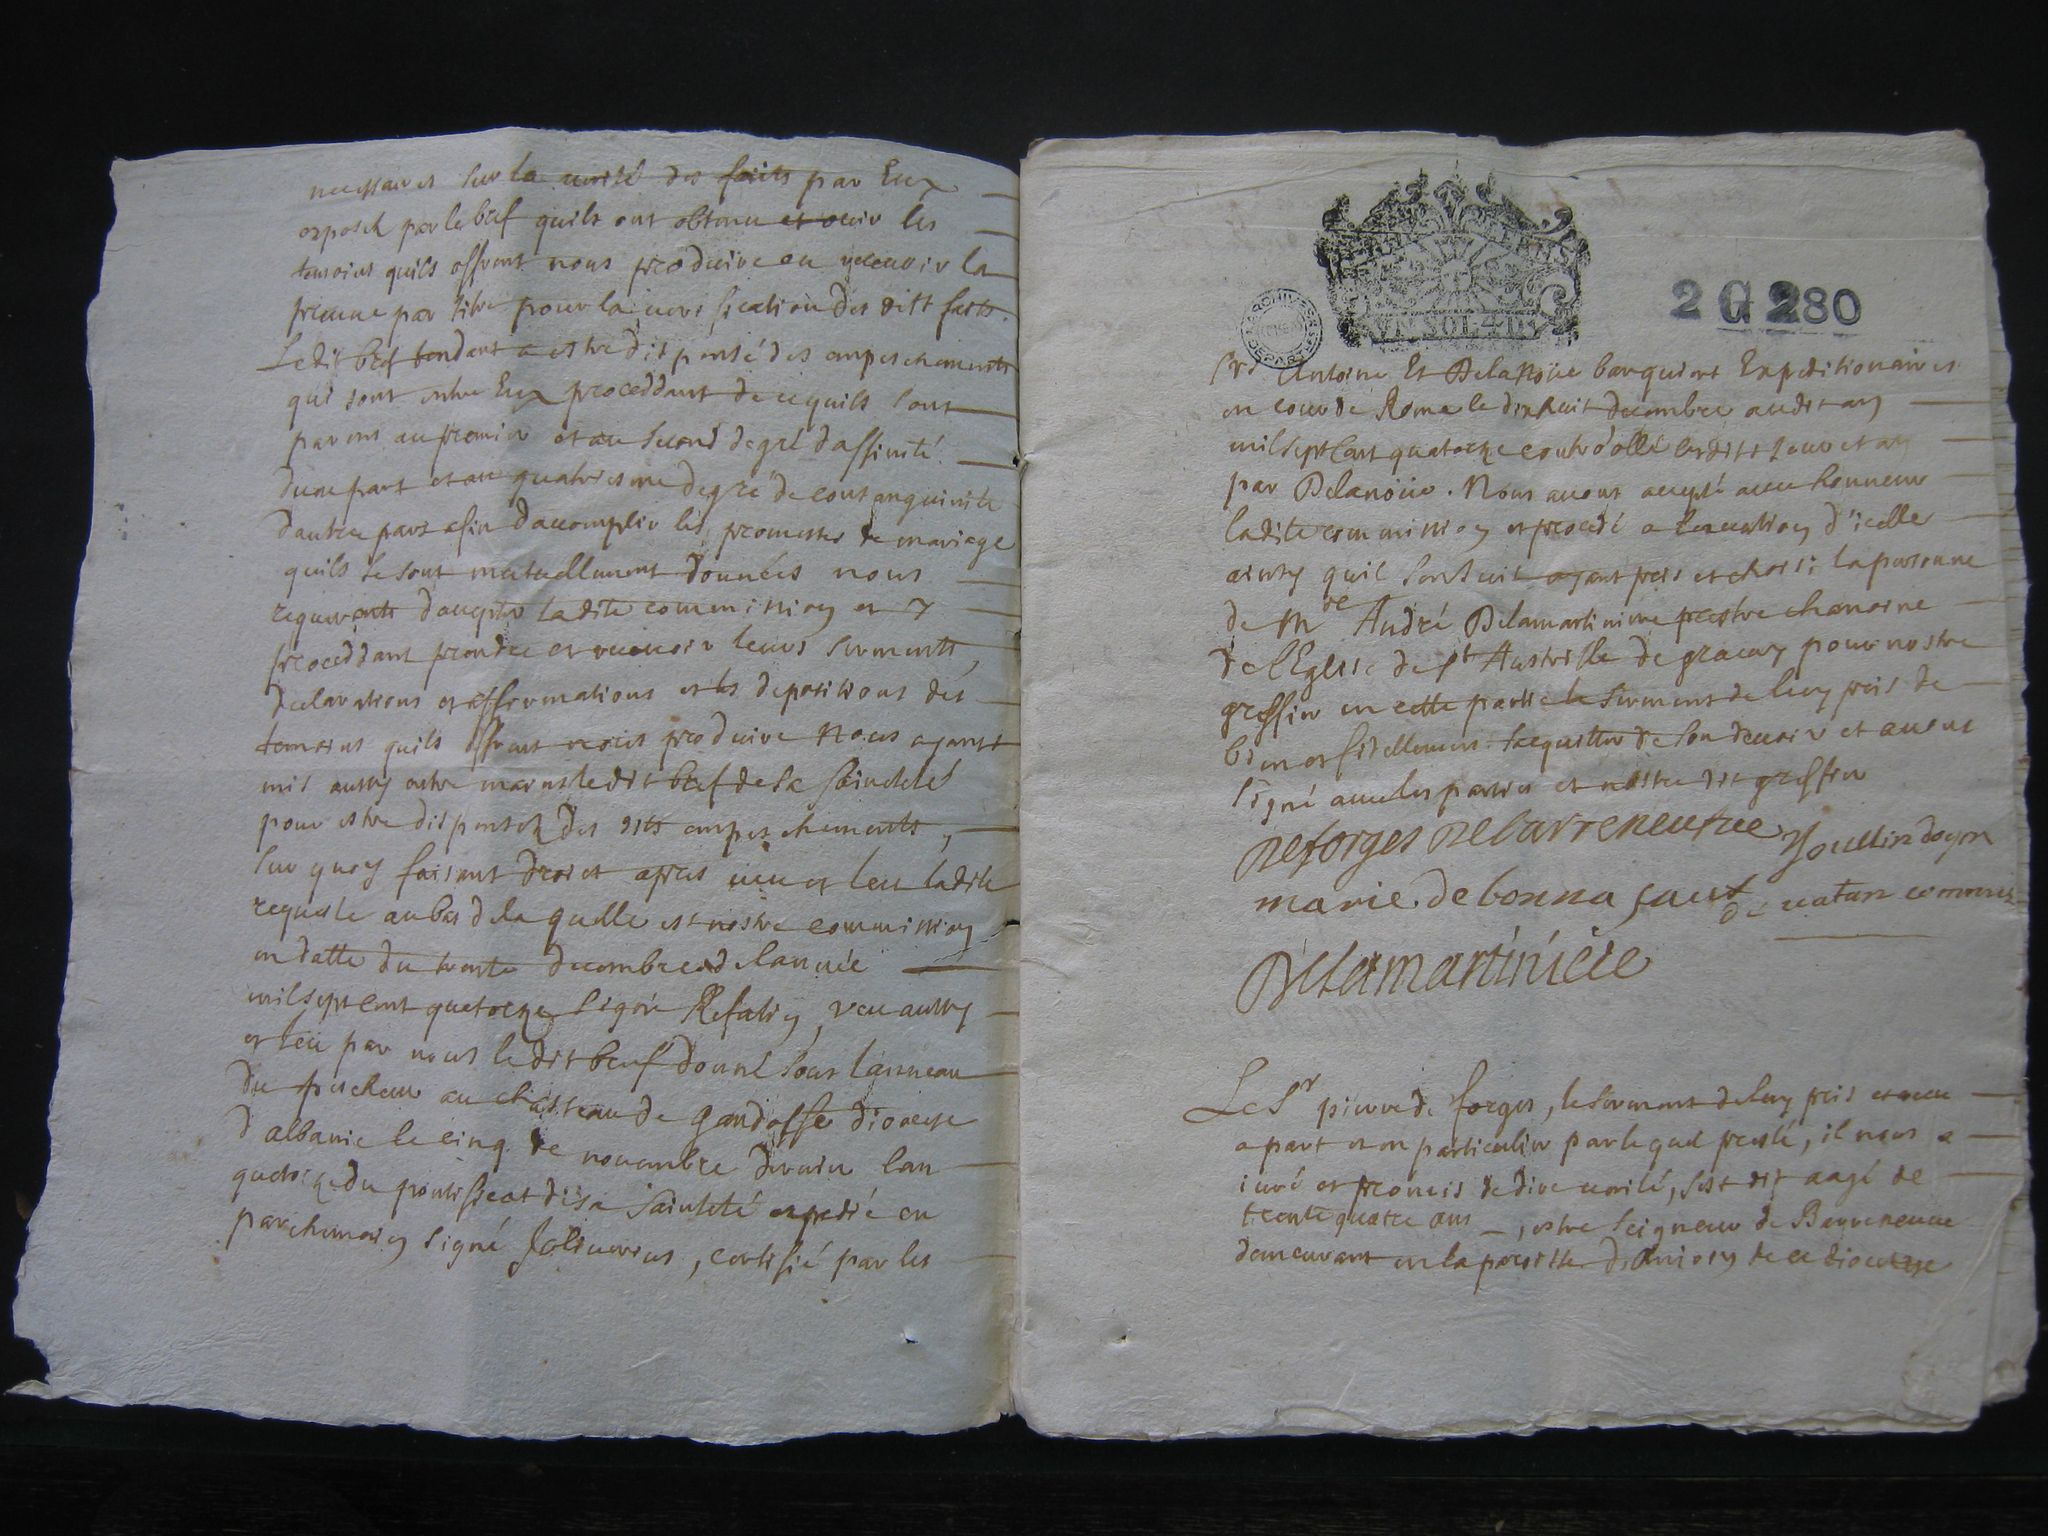 necessaires sur la verité des faits par Eux
exposés par le bref quils ont obtenu et ouir les
temoins quils offrent nous produire ou recevoir la
preuve par titre pour la verification des ditt faits.
Le dit bref tendant a estre dispensé des empeschements
qui sont entre Eux proceddant de cequils sont
parens au premier et au second degré daffinité
dune part et au quatriesme degré de consanguinité
dautre part afin daccomplir les promesses de mariage
quils se sont mutuellement données nous
requerants daccepter ladite commission et y
proceddant prendre et recevoir leurs serments,
declarations et affirmations et les depositions des
temoins quils offrent nous produire Nous ayant
mis aussy entre mains ledit bref de Sa Saincteté
pour estre dispensés des dits empeschements,
Sur quoy faisant droit et apres veu et leu ladite
requeste au bas de laquelle est nostre commission
en datte du trente decembre de lannée
mil sept cent quatorze signé Refatin, veu aussy
et leu par nous le dit bref donné sous lanneau
du pescheur au chasteau de Gandolfe diocese
d'albanie le cinq de novembre dernier lan
quatorze du pontificat de sa Sainteté expedié en
parchemin signé Joliverius, certifié par les
2 G 280
VN SOL 4 D
Srs Antoine Et Delanoüe banquiers Expeditionaires
en cour de Rome le dix huit decembre audit an
mil sept cent quatorze controollé lesdits jour et an
par Delanoüe. Nous avons accepté avec honneur
ladite commission et procedé a lexecution d'icelle
ainsy quil sensuit ayant pris et choisi la personne
de Mre André Delamartiniere prestre chanoine
de l'Eglise de St Austrille de gracay pour nostre
greffier en cette partie le serment de luy pris de
bien et fidellement sacquitter de son devoir et avons
signé avec les parties et nostre dit greffier
Deforges Debarreneuve Joullin doyen
marie de bonna faut de vatan commis
Delamartiniere
Le Sr pierre de forges, le serment de luy pris et receu
a part et en particulier par lequel presté, il nous a
iuré et promis de dire verité, sest dit aagé de
trente quatre ans, estre seigneur de Barreneuve
demeurant en la paroisse danjoin de ce diocesse